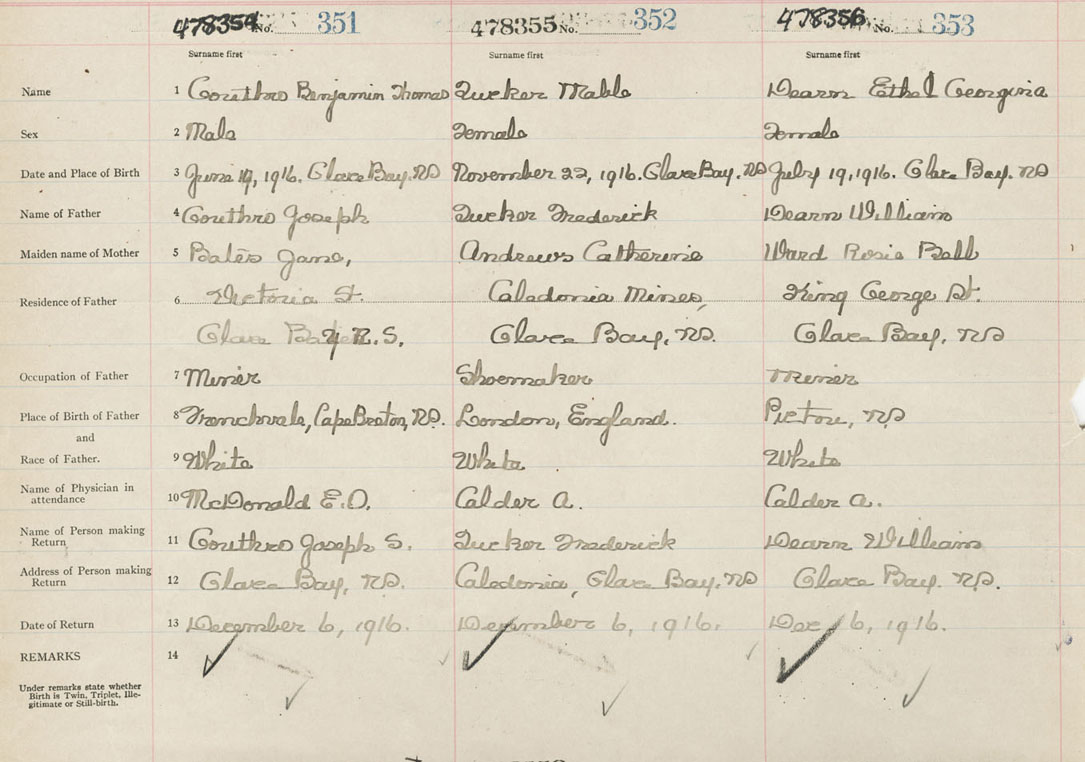 478354 No. 351 478355 No. 352 478356 No. 353
Surname first Surname first Surname first
Name 1 Gouthro Benjamin Thomas Tucker Mable Dearn Ethel Georgina
Sex 2 Male Female Female
Date and Place of Birth 3 June 19, 1916. Glace Bay. NS November 22, 1916. Glace Bay. NS July 19, 1916. Glace Bay. NS
Name of Father 4 Gouthro Joseph Tucker Frederick Dearn William
Maiden name of Mother 5 Bates Jane, Andrews Catherine Ward Rosie Bell
Residence of Father 6 Victoria St. Caledonia Mines, King George St.
Glace Bay N.S. Glace Bay, NS. Glace Bay, NS
Occupation of Father 7 Miner Shoemaker Miner
Place of Birth of Father 8 Frenchvale, Cape Breton, NS. London, England. Pictou, NS
and
Race of Father. 9 White White White
Name of Physician in
attendance 10 McDonald E.O. Calder A. Calder A.
Name of Person making
Return 11 Gouthro Joseph S. Tucker Frederick Dearn William
Address of Person making
Return 12 Glace Bay, NS. Caledonia, Glace Bay, NS Glace Bay. NS.
Date of Return 13 December 6, 1916. December 6, 1916. Dec 6, 1916.
REMARKS 14
Under remarks state whether
Birth is Twin, Triplet, Ille-
gitimate or Still-birth.